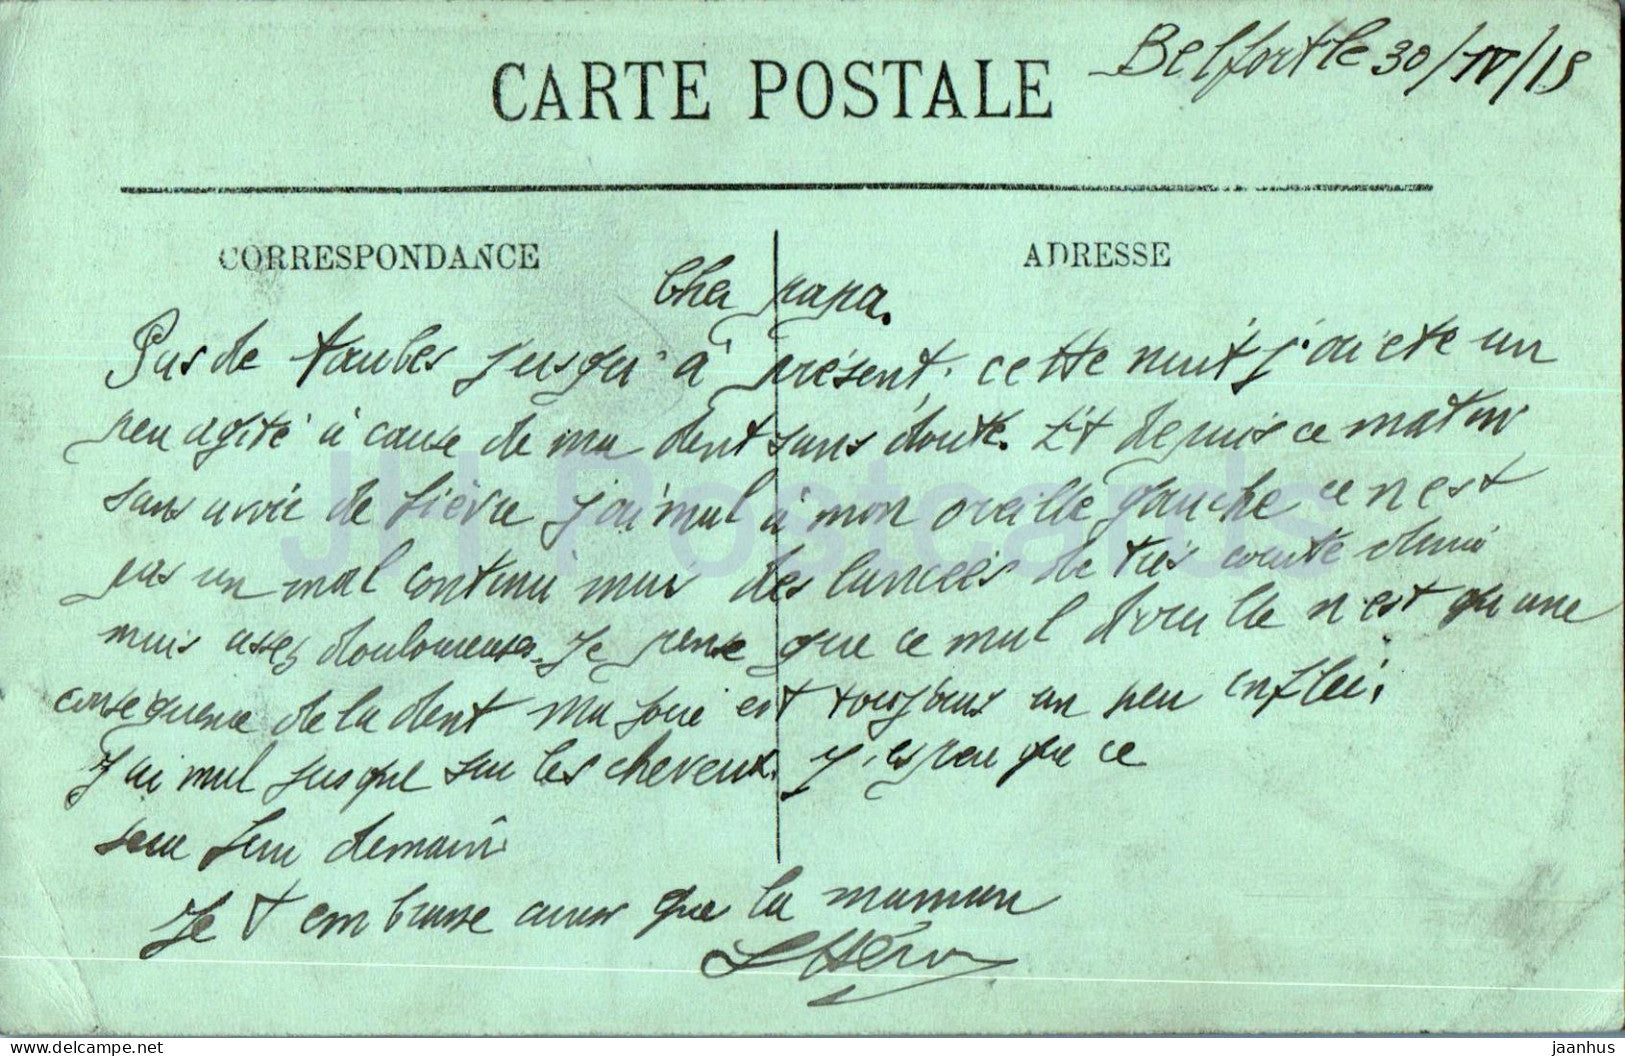 CARTE POSTALE
Belfort le 30/IV/15
CORRESPONDANCE
ADRESSE
Cher papa.
Pas de taubes jusqu'à présent, cette nuit j'ai été un
peu agité à cause de ma dent sans doute. Et depuis ce matin
sans avoir de fièvre j'ai mal à mon oreille gauche ce n'est
pas un mal continu mais des lancées de très courte
mais assez douloureuses. Je pense que ce mal d'oreille n'est qu'une
conséquence de la dent ma joue est toujours un peu enflée.
J'ai mal jusque sur les cheveux. J'espère que ce
sera demain
Je t'embrasse ainsi que la maman
JH Postcards
delcampe.net
jaanhus